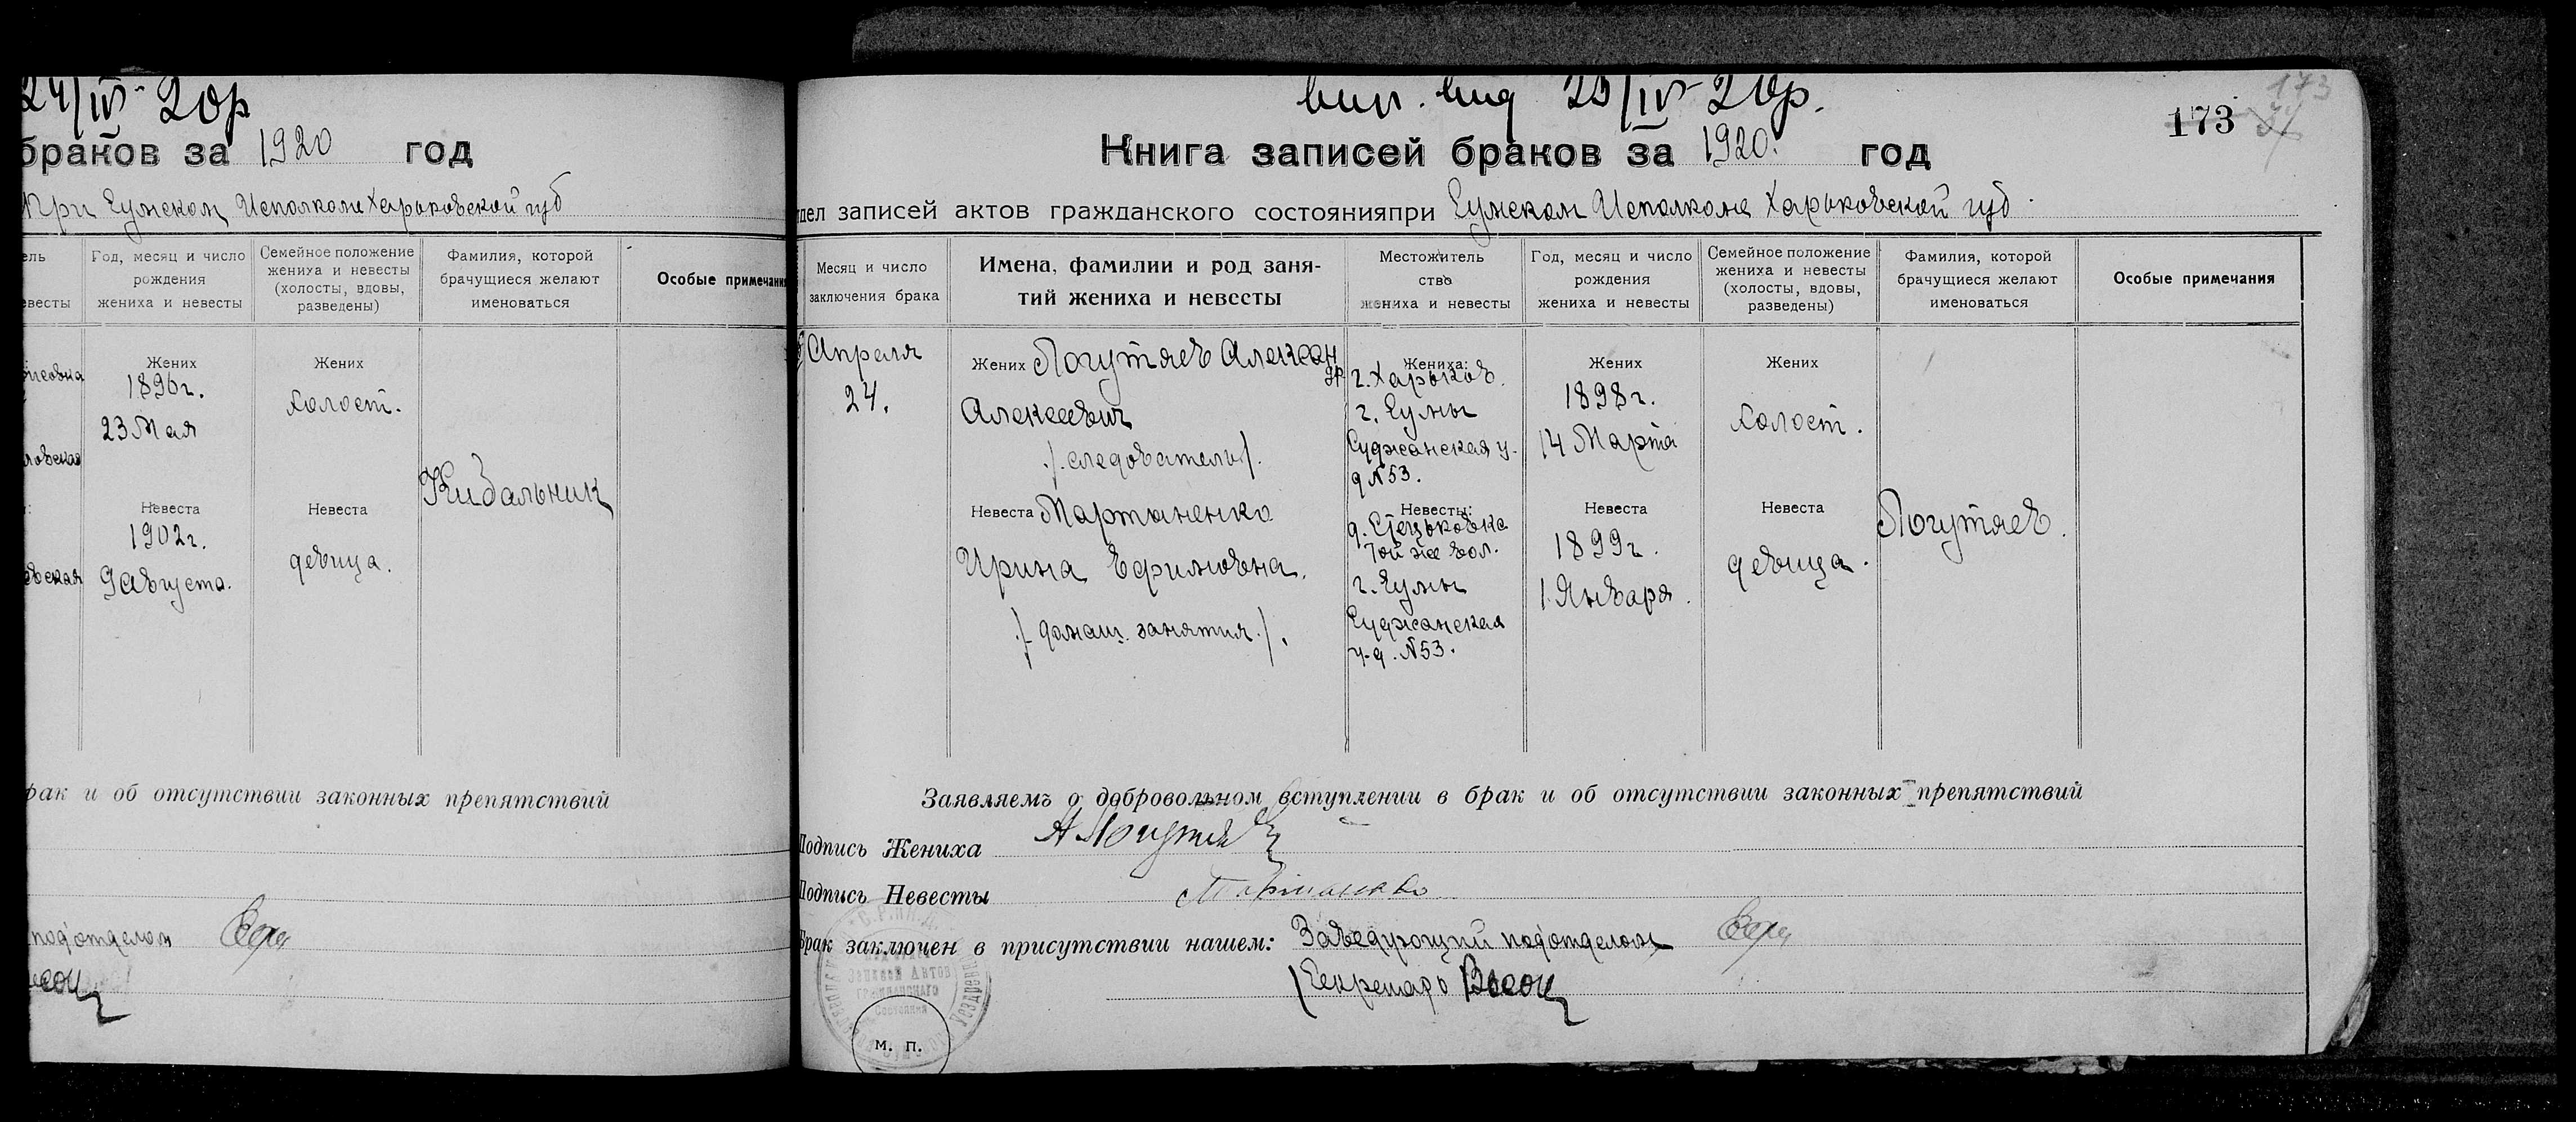 24/IV-20р
браков за 1920 год
При Сумском Исполкоме Харьковской губ
Год, месяц и число рождения жениха и невесты
Семейное положение жениха и невесты (холосты, вдовы, разведены)
Фамилия, которой брачущиеся желают именоваться
Особые примечания
Жених
1896г.
23 Мая
Жених
холост.
Невеста
1902г.
9 Августа.
Невеста
девица.
Кибальник
брак и об отсутствии законных препятствий
подотделом
вип. вид 25/IV-20р.
173
173
Книга записей браков за 1920. год
дел записей актов гражданского состояния при Сумском Исполкоме Харьковской губ.
Месяц и число
заключения брака
Имена, фамилии и род заня-
тий жениха и невесты
Местожитель
ство
жениха и невесты
Год, месяц и число
рождения
жениха и невесты
Семейное положение
жениха и невесты
(холосты, вдовы,
разведены)
Фамилия, которой
брачущиеся желают
именоваться
Особые примечания
Апреля
24.
Жених Логутяев Александр
Алексеевич
/.следователь/.
Невеста Мартыненко
Ирина Ефимовна.
/.домаш. занятия./.
Жениха:
г. Харьков.
г. Сумы
Суджанская у.
д N53.
Невесты:
д. Стецьковка
той же вол.
г. Сумы
Суджанская
у-д. N53.
Жених
1898г.
14 Марта
Невеста
1899г.
1. Января.
Жених
холост.
Невеста
девица.
Логутяев.
Заявляемъ о добровольном вступлении в брак и об отсутствии законных препятствий
Подпись Жениха А Логутяев
Подпись Невесты Мартыненко
Брак заключен в присутствии нашем: Заведующий подотделом
Секретарь Высоц
Записей Актов
Гражданскаго
Состояния
м. п.